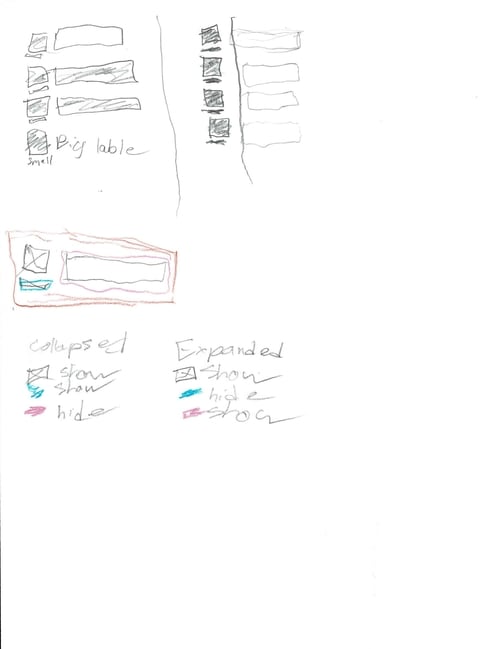 Big lable
small
Collapsed
show
show
hide
Expanded
show
hide
show